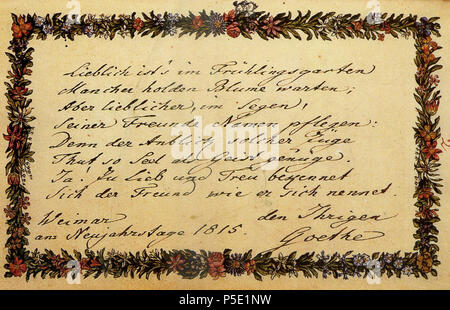 Lieblich ist's im Frühlingsgarten
Mancher holden Blume warten;
Aber lieblicher, im Segen,
Seiner Freunde Namen pflegen:
Denn der Anblick solcher Züge
Thut so Seel als Geist genüge
Ja! Zu Lieb und Treu bekennet
Sich der Freund wie er sich nennet.
Weimar den Ihrigen
am Neujahrstage 1815. Goethe
alamy
alamy
Image ID: P5E1NW
www.alamy.com